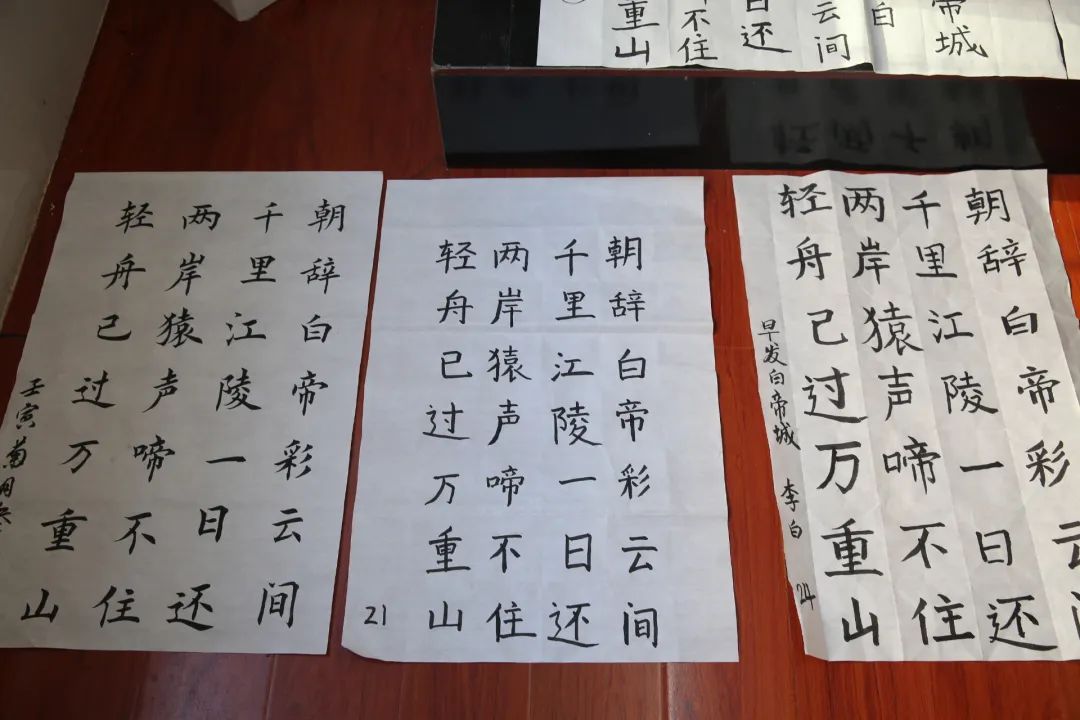 帝城
白
云间
日还
不住
重山
朝辞白帝彩云间
千里江陵一日还
两岸猿声啼不住
轻舟已过万重山
壬寅菊月
朝辞白帝彩云间
千里江陵一日还
两岸猿声啼不住
轻舟已过万重山
21
朝辞白帝彩云间
千里江陵一日还
两岸猿声啼不住
轻舟已过万重山
早发白帝城 李白
24